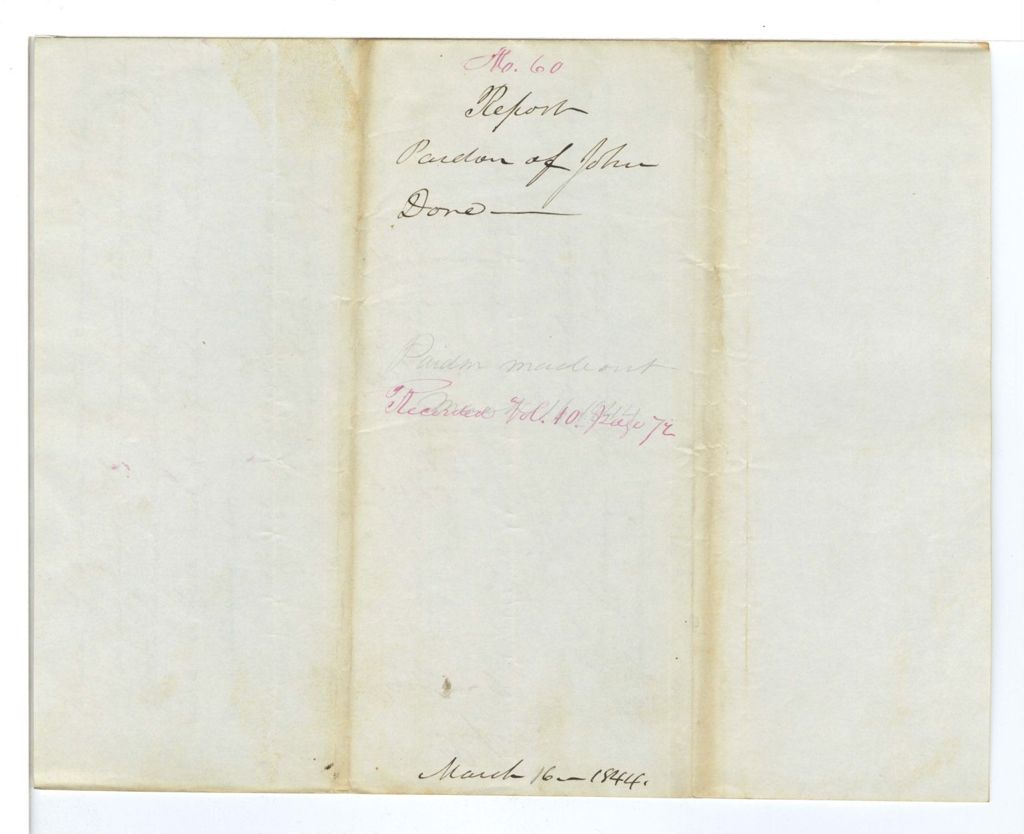 No. 60
Report
Pardon of John
Done —
Pardon made out
Recorded Vol. 10. Page 72
March 16 — 1844.